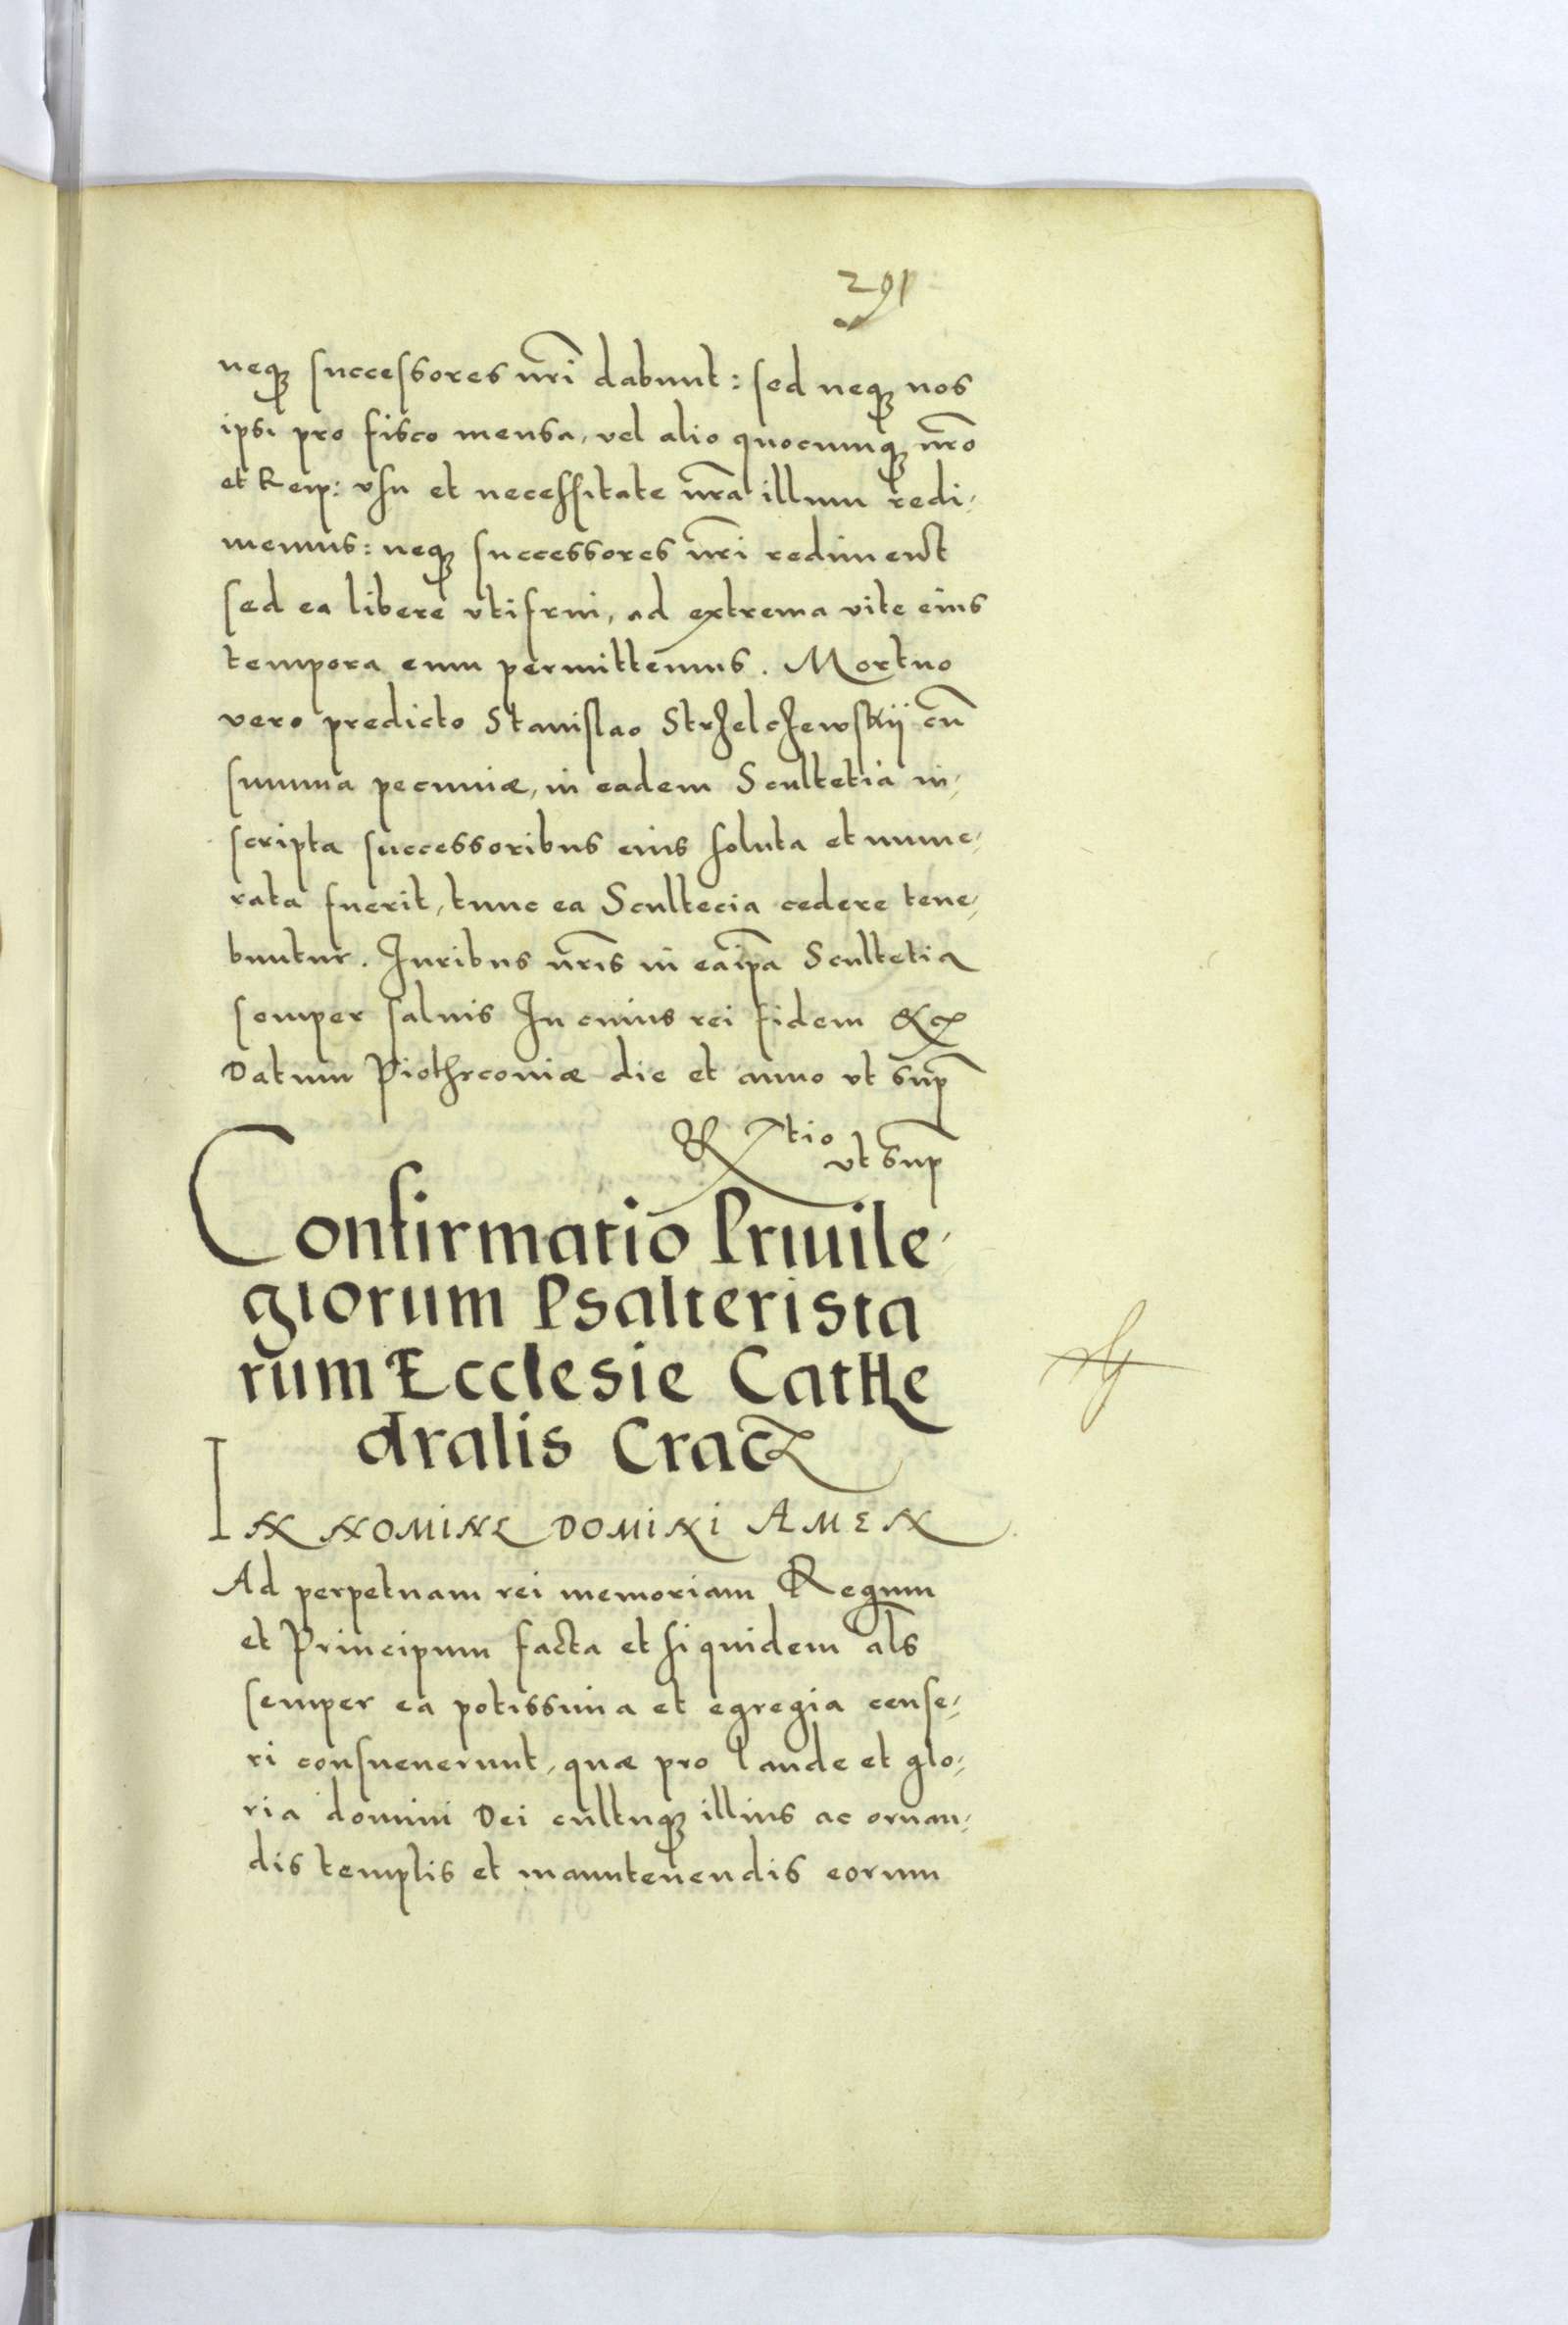 291
neq(ue) successores nr̃i dabunt: sed neq(ue) nos
ipsi pro fisco mensa, vel alio quocumq(ue) nr̃o
et Reip: vsu et necessitate nr̃a illum redi-
memus: neq(ue) successores nr̃i rediment
sed ea libere vtifrui, ad extrema vite eius
tempora eum permittemus. Mortuo
vero predicto Stanislao Strzelczewskij cũ
summa pecuniæ, in eadem Scultetia in-
scripta successoribus eius soluta et nume-
rata fuerit, tunc ea Scultecia cedere tene-
buntur. Iuribus nr̃is in ea ip̃a Scultetia
semper saluis In cuius rei fidem &c
Datum Piothrcouiæ die et anno vt sup̃
tio
vt sup̃
Confirmatio Priuile-
giorum Psalterista
rum Ecclesie Cathe
dralis Crac
IN NOMINE DOMINI AMEN
Ad perpetuam rei memoriam Regum
et Principum facta et siquidem al̃s
semper ea potissima et egregia cense-
ri consueuerunt, quæ pro laude et glo-
ria domini Dei cultuq(ue) illius ac ornan-
dis templis et manutenendis eorum